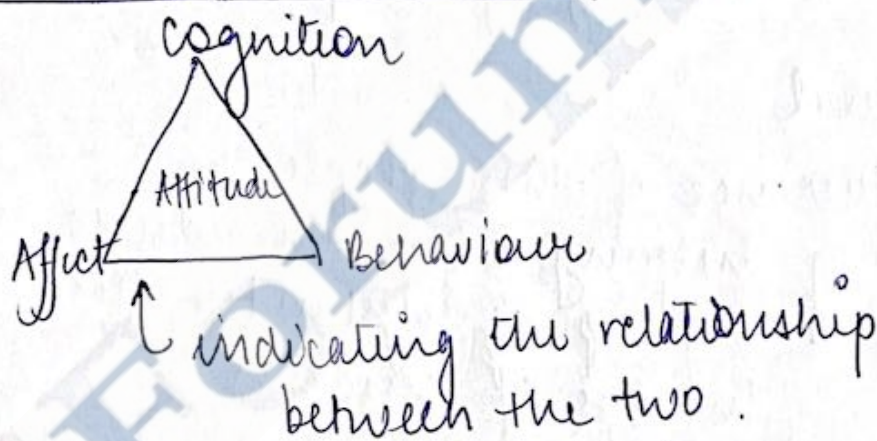 Cognition
Attitude
Affect
Behaviour
indicating the relationship
between the two.
Forum